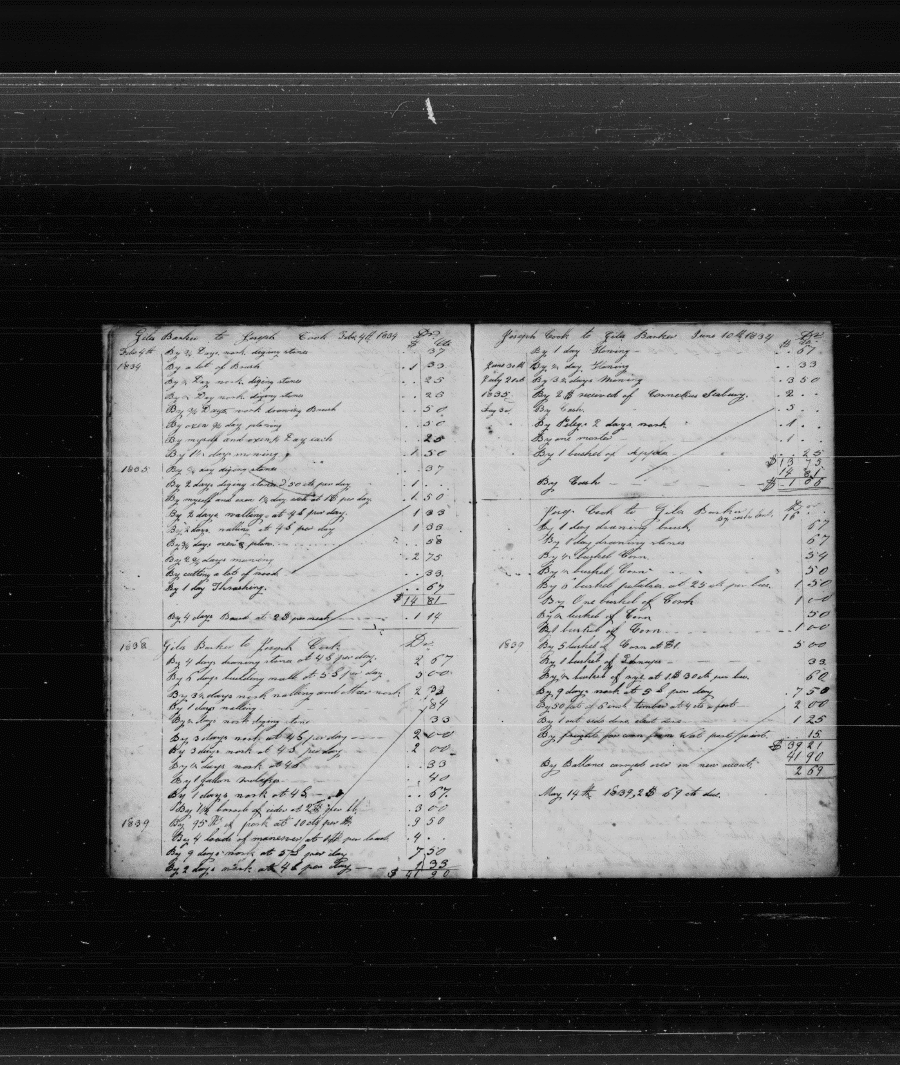 Gila Barker to Joseph Cook Feb 4th 1834 Dr
$ Cts
Feb 4th By ¾ Days work diging stones .. 37
1834 By a lot of Brush . 1 33
By ½ Day work diging stones .. 25
By ½ Day work diging stones .. 25
By ¾ Days work drawing Brush .. 50
By oxen ¾ day plowing .. 50
By myself and oxen ¼ Day each .. 25
By 1½ days mowing . 1 50
1835 By ¾ day diging stones .. 37
By 2 days diging stones 50 ct per day . 1 ..
By myself and oxen 1½ day each at 1$ per day . 1 50
By 2 days walling at 4S per day . 1 33
By 2 days walling at 4S per day . 1 33
By ¾ days oxen plow .. 58
By 2¾ days mowing . 2 75
By cutting a lot of wood .. 33
By 1 day Thrashing .. 67
$ 14 81
By 4 days Board at 2$ per week . 1 14
1838 Gila Barker to Joseph Cook Dr
By 4 days drawing stone at 4S per day 2 67
By 6 days building wall at 5S per day 5 00
By 3½ days work walling and other work 2 33
By 1 days walling 84
By ½ days work diging stone 33
By 3 days work at 4S per day 2 00
By 3 days work at 4S per day 2 00
By ½ days work at 4S .. 33
By 1 gallon molasses .. 40
By 1 days work at 4S .. 67
By 1½ barrels of cider at 2$ per bl . 3 00
1839 By 95 lb of pork at 10 cts per lb . 9 50
By 4 loads of manure at 1$ per load . 4 ..
By 9 days work at 5S per day 7 50
By 2 days work at 4S per Day 1 33
$ 41 90
Joseph Cook to Gila Barker June 10th 1834 Dr
$ Cts
By 1 day Howing .. 67
June 30th By ½ day Howing .. 33
July 20th By 3½ days Mowing . 3 50
1835 By 2$ received of Cornelius . 2 ..
By Cash . 5 ..
By 2 days work . 1 ..
By one . 1 ..
By 1 bushel of Apples .. 25
$ 13 75
14 81
By Cash $ 1 06
Joseph Cook to Gila Barker Dr
By 1 day drawing brush 67
By 1 day drawing stones 67
By ½ bushel Corn 54
By ½ bushel Corn 50
By 6 bushel potatoes at 25 ct per bus. 1 50
By One bushel of Corn 1 00
By ½ bushel of Corn 50
By 1 bushel of Corn 1 00
1839 By 5 bushel of Corn at $1. 5 00
By 1 bushel of 33
By ½ bushel of rye at 1$ 30 ct per bus. 60
By 9 days work at 5S per day . 7 50
By 50 feet of 6 inch timber at 4 cts a foot 2 00
By 1 1 25
By freight for corn from West port point .. 15
$ 39 21
41 90
By Ballance carryed over in new account 2 69
May 14th 1839, 2$ 69 ct due.